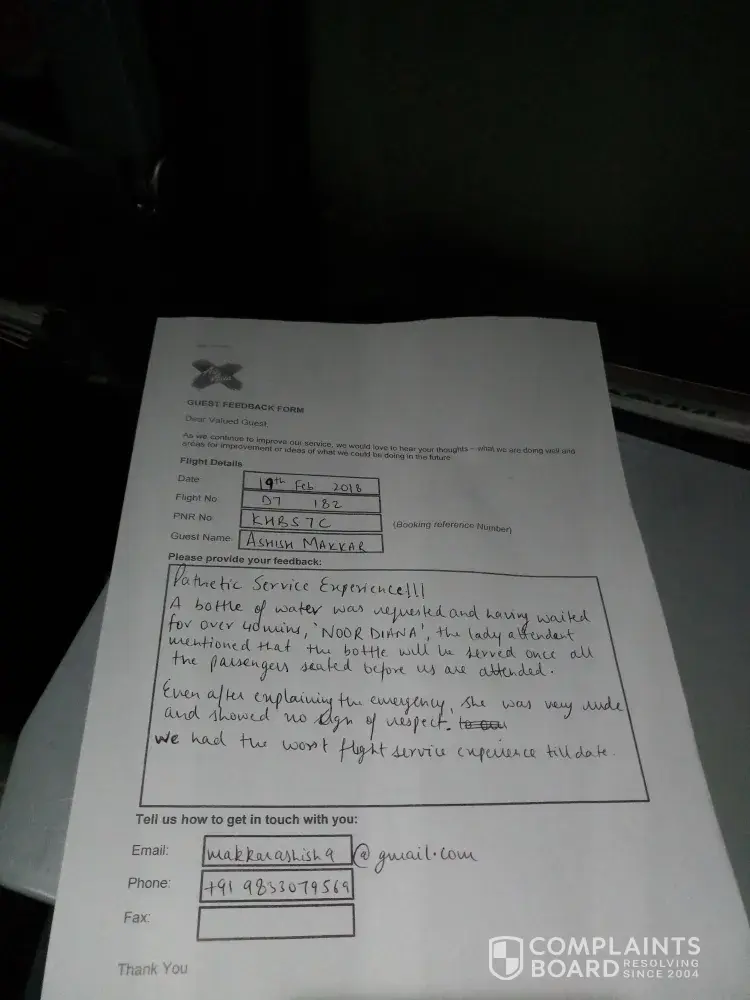 GUEST FEEDBACK FORM
Dear Valued Guest,
As we continue to improve our service, we would love to hear your thoughts – what we are doing well and
areas for improvement or ideas of what we could be doing in the future.
Flight Details
Date 19th Feb 2018
Flight No D7 182
PNR No KHBS7C (Booking reference Number)
Guest Name ASHISH MAKKAR
Please provide your feedback:
Pathetic Service Experience!!!
A bottle of water was requested and having waited
for over 40mins, 'NOOR DIANA', the lady attendant
mentioned that the bottle will be served once all
the passengers seated before us are attended.
Even after explaining the emergency, she was very rude
and showed no sign of respect.
We had the worst flight service experience till date.
Tell us how to get in touch with you:
Email: makkarashish9@gmail.com
Phone: +91 9833079569
Fax:
Thank You
COMPLAINTS
BOARD RESOLVING
SINCE 2004